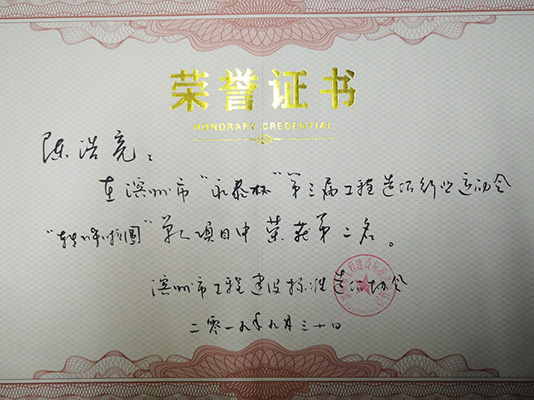 荣誉证书
HONORARY CREDENTIAL
陈浩亮：
在滨州市“永泰杯”第三届工程造价行业运动会
单人项目中荣获第二名。
滨州市工程建设标准造价协会
二零一九年九月三十日